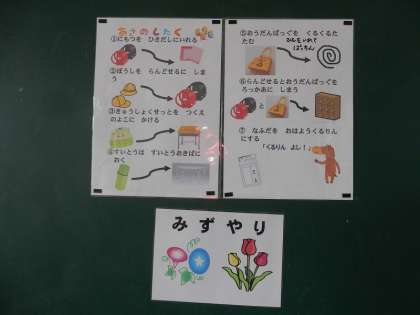 あさのしたく
①にもつを ひきだしにいれる
②ぼうしを らんどせるに しま
う
③きゅうしょくせっとを つくえ
のよこに かける
④すいとうは すいとうおきばに
おく
⑤おうだんばっぐを くるくるた
たむ
⑥らんどせるとおうだんばっぐを
ろっかあに しまう
と
⑦ なふだを おはようくるりん
にする
「くるりん よし！」
みずやり